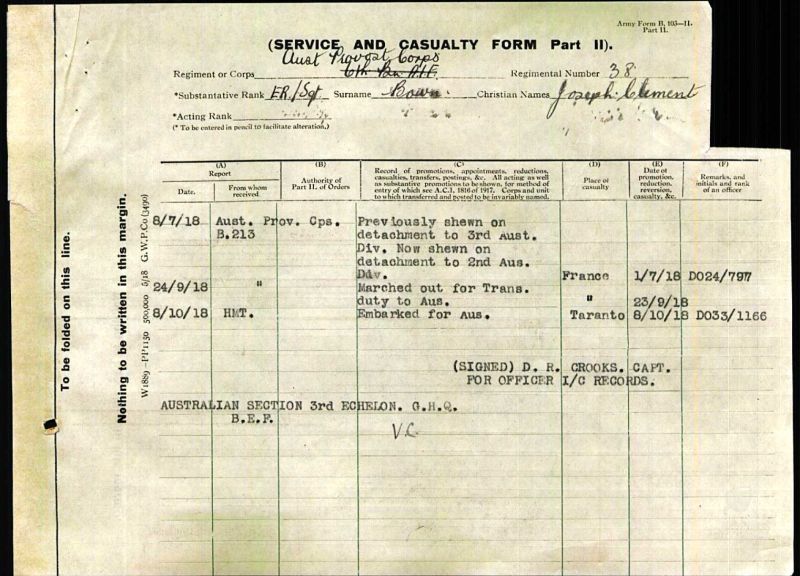 Army Form B. 103—II.
Part II.
(SERVICE AND CASUALTY FORM Part II).
Aust Provost Corps
Regiment or Corps 6th Bn AIF Regimental Number 38
*Substantive Rank ER/Sgt Surname Bown. Christian Names Joseph Clement
*Acting Rank
(* To be entered in pencil to facilitate alteration.)
To be folded on this line.
Nothing to be written in this margin.
W1889—PP1150 500,000 5/18 G.W.P.Co (3490)
(A) (B) (C) (D) (E) (F)
Report
Date. From whom received.
Authority of Part II. of Orders
Record of promotions, appointments, reductions, casualties, transfers, postings, &c. All acting as well as substantive promotions to be shown, for method of entry of which see A.C.I. 1816 of 1917. Corps and unit to which transferred and posted to be invariably named.
Place of casualty
Date of promotion, reduction, reversion, casualty, &c.
Remarks, and initials and rank of an officer
8/7/18 Aust. Prov. Cps. Previously shewn on
B.213 detachment to 3rd Aust.
Div. Now shewn on
detachment to 2nd Aus.
Div. France 1/7/18 DO24/797
24/9/18 " Marched out for Trans.
duty to Aus. " 23/9/18
8/10/18 HMT. Embarked for Aus. Taranto 8/10/18 DO33/1166
(SIGNED) D. R. CROOKS. CAPT.
FOR OFFICER I/C RECORDS.
AUSTRALIAN SECTION 3rd ECHELON. G.H.Q.
B.E.F.